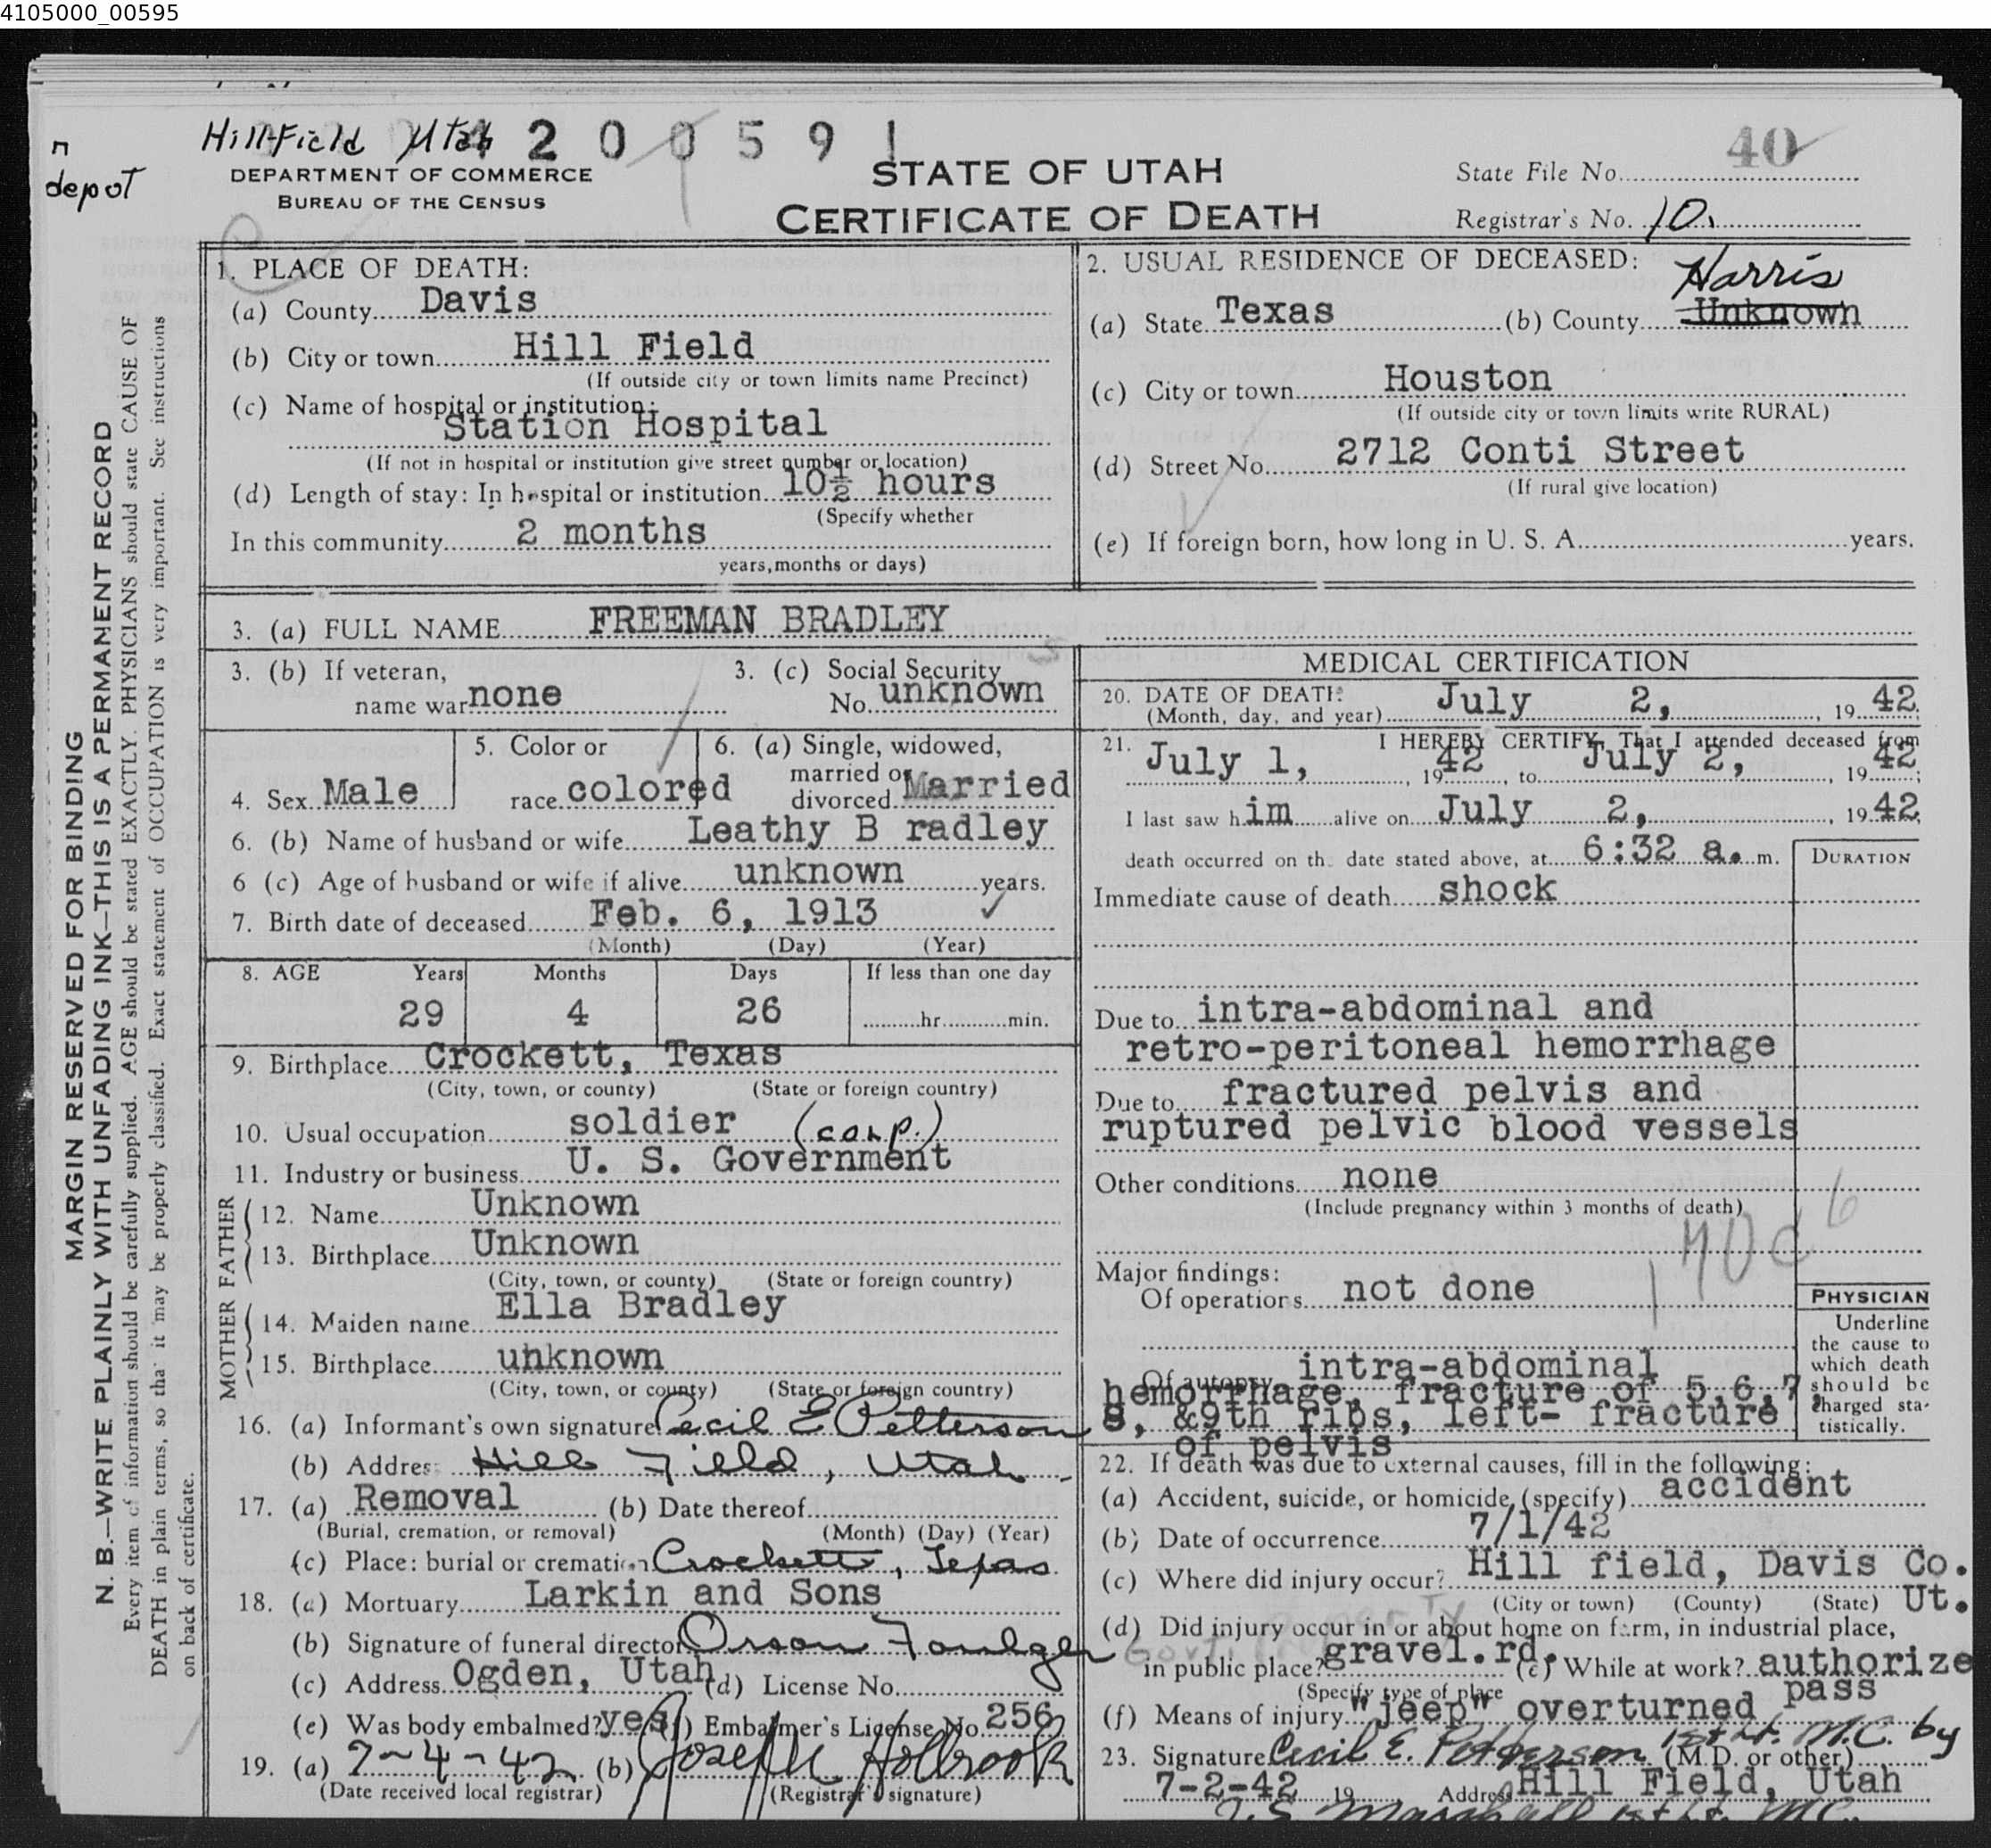 4105000_00595
Hill Field Utah 4 2 0 0 5 9 1
depot
DEPARTMENT OF COMMERCE
BUREAU OF THE CENSUS
STATE OF UTAH
CERTIFICATE OF DEATH
State File No. 40
Registrar's No. 10.
MARGIN RESERVED FOR BINDING
N. B.—WRITE PLAINLY WITH UNFADING INK—THIS IS A PERMANENT RECORD
Every item of information should be carefully supplied. AGE should be stated EXACTLY. PHYSICIANS should state CAUSE OF
DEATH in plain terms, so that it may be properly classified. Exact statement of OCCUPATION is very important. See instructions
on back of certificate.
1. PLACE OF DEATH:
(a) County Davis
(b) City or town Hill Field
(If outside city or town limits name Precinct)
(c) Name of hospital or institution:
Station Hospital
(If not in hospital or institution give street number or location)
(d) Length of stay: In hospital or institution 10½ hours
(Specify whether
In this community 2 months
years, months or days)
2. USUAL RESIDENCE OF DECEASED:
Harris
(a) State Texas (b) County Unknown
(c) City or town Houston
(If outside city or town limits write RURAL)
(d) Street No. 2712 Conti Street
(If rural give location)
(e) If foreign born, how long in U. S. A. years.
3. (a) FULL NAME FREEMAN BRADLEY
3. (b) If veteran,
name war none
3. (c) Social Security
No. unknown
4. Sex Male
5. Color or
race colored
6. (a) Single, widowed,
married or
divorced Married
6. (b) Name of husband or wife Leathy B radley
6 (c) Age of husband or wife if alive unknown years.
7. Birth date of deceased Feb. 6, 1913
(Month) (Day) (Year)
8. AGE Years Months Days If less than one day
29 4 26 hr. min.
9. Birthplace Crockett, Texas
(City, town, or county) (State or foreign country)
10. Usual occupation soldier (corp.)
11. Industry or business U. S. Government
FATHER
12. Name Unknown
13. Birthplace Unknown
(City, town, or county) (State or foreign country)
MOTHER
14. Maiden name Ella Bradley
15. Birthplace unknown
(City, town, or county) (State or foreign country)
16. (a) Informant's own signature Cecil E Petterson
(b) Address Hill Field, Utah
17. (a) Removal (b) Date thereof
(Burial, cremation, or removal) (Month) (Day) (Year)
(c) Place: burial or cremation Crockett, Texas
18. (a) Mortuary Larkin and Sons
(b) Signature of funeral director Orson Foulger
(c) Address Ogden, Utah (d) License No.
(e) Was body embalmed? yes (f) Embalmer's License No. 256
19. (a) 7-4-42 (b) Joseph Holbrook
(Date received local registrar) (Registrar's signature)
MEDICAL CERTIFICATION
20. DATE OF DEATH:
(Month, day, and year) July 2, 19 42
21. I HEREBY CERTIFY, That I attended deceased from
July 1, 19 42, to July 2, 19 42;
I last saw h im alive on July 2, 19 42
death occurred on the date stated above, at 6:32 a. m.
DURATION
Immediate cause of death shock
Due to intra-abdominal and
retro-peritoneal hemorrhage
Due to fractured pelvis and
ruptured pelvic blood vessels
Other conditions none
(Include pregnancy within 3 months of death)
Major findings:
Of operations not done
170c 6
PHYSICIAN
Underline
the cause to
which death
should be
charged sta-
tistically.
Of autopsy intra-abdominal
hemorrhage, fracture of 5,6,7,
8, &9th ribs, left- fracture
of pelvis
22. If death was due to external causes, fill in the following:
(a) Accident, suicide, or homicide (specify) accident
(b) Date of occurrence 7/1/42
(c) Where did injury occur? Hill field, Davis Co.
(City or town) (County) (State) Ut.
(d) Did injury occur in or about home on farm, in industrial place,
in public place? gravel.rd. (e) While at work? authorize
(Specify type of place pass
(f) Means of injury "jeep" overturned
23. Signature Cecil E. Petterson 1st Lt. M.C. by
(M.D. or other)
7-2-42 19 Address Hill Field, Utah
1st Lt. MC.